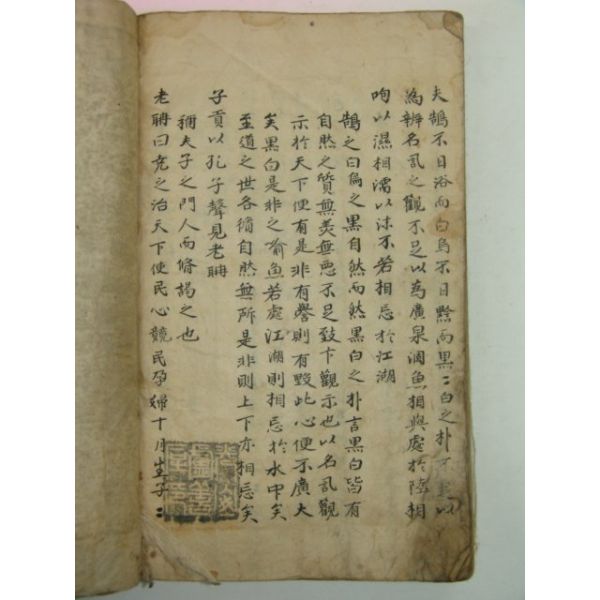 夫鵠不日浴而白烏不日黔而黑〻白之朴不足以
為辨名譽之觀不足以為廣泉涸魚相與處於陸相
呴以濕相濡以沫不若相忘於江湖
鵠之白烏之黑自然而然黑白之朴言黑白皆有
自然之質無美無惡不足致卞觀示也以名譽觀
示於天下便有是非有譽則有毀此心便不廣大
矣黑白是非之喻魚若處江湖則相忘於水中矣
至道之世各循自然無所是非則上下亦相忘矣
子貢以孔子聲見老聃
稱夫子之門人而修謁之也
老聃曰堯之治天下使民心競民孕婦十月生子〻